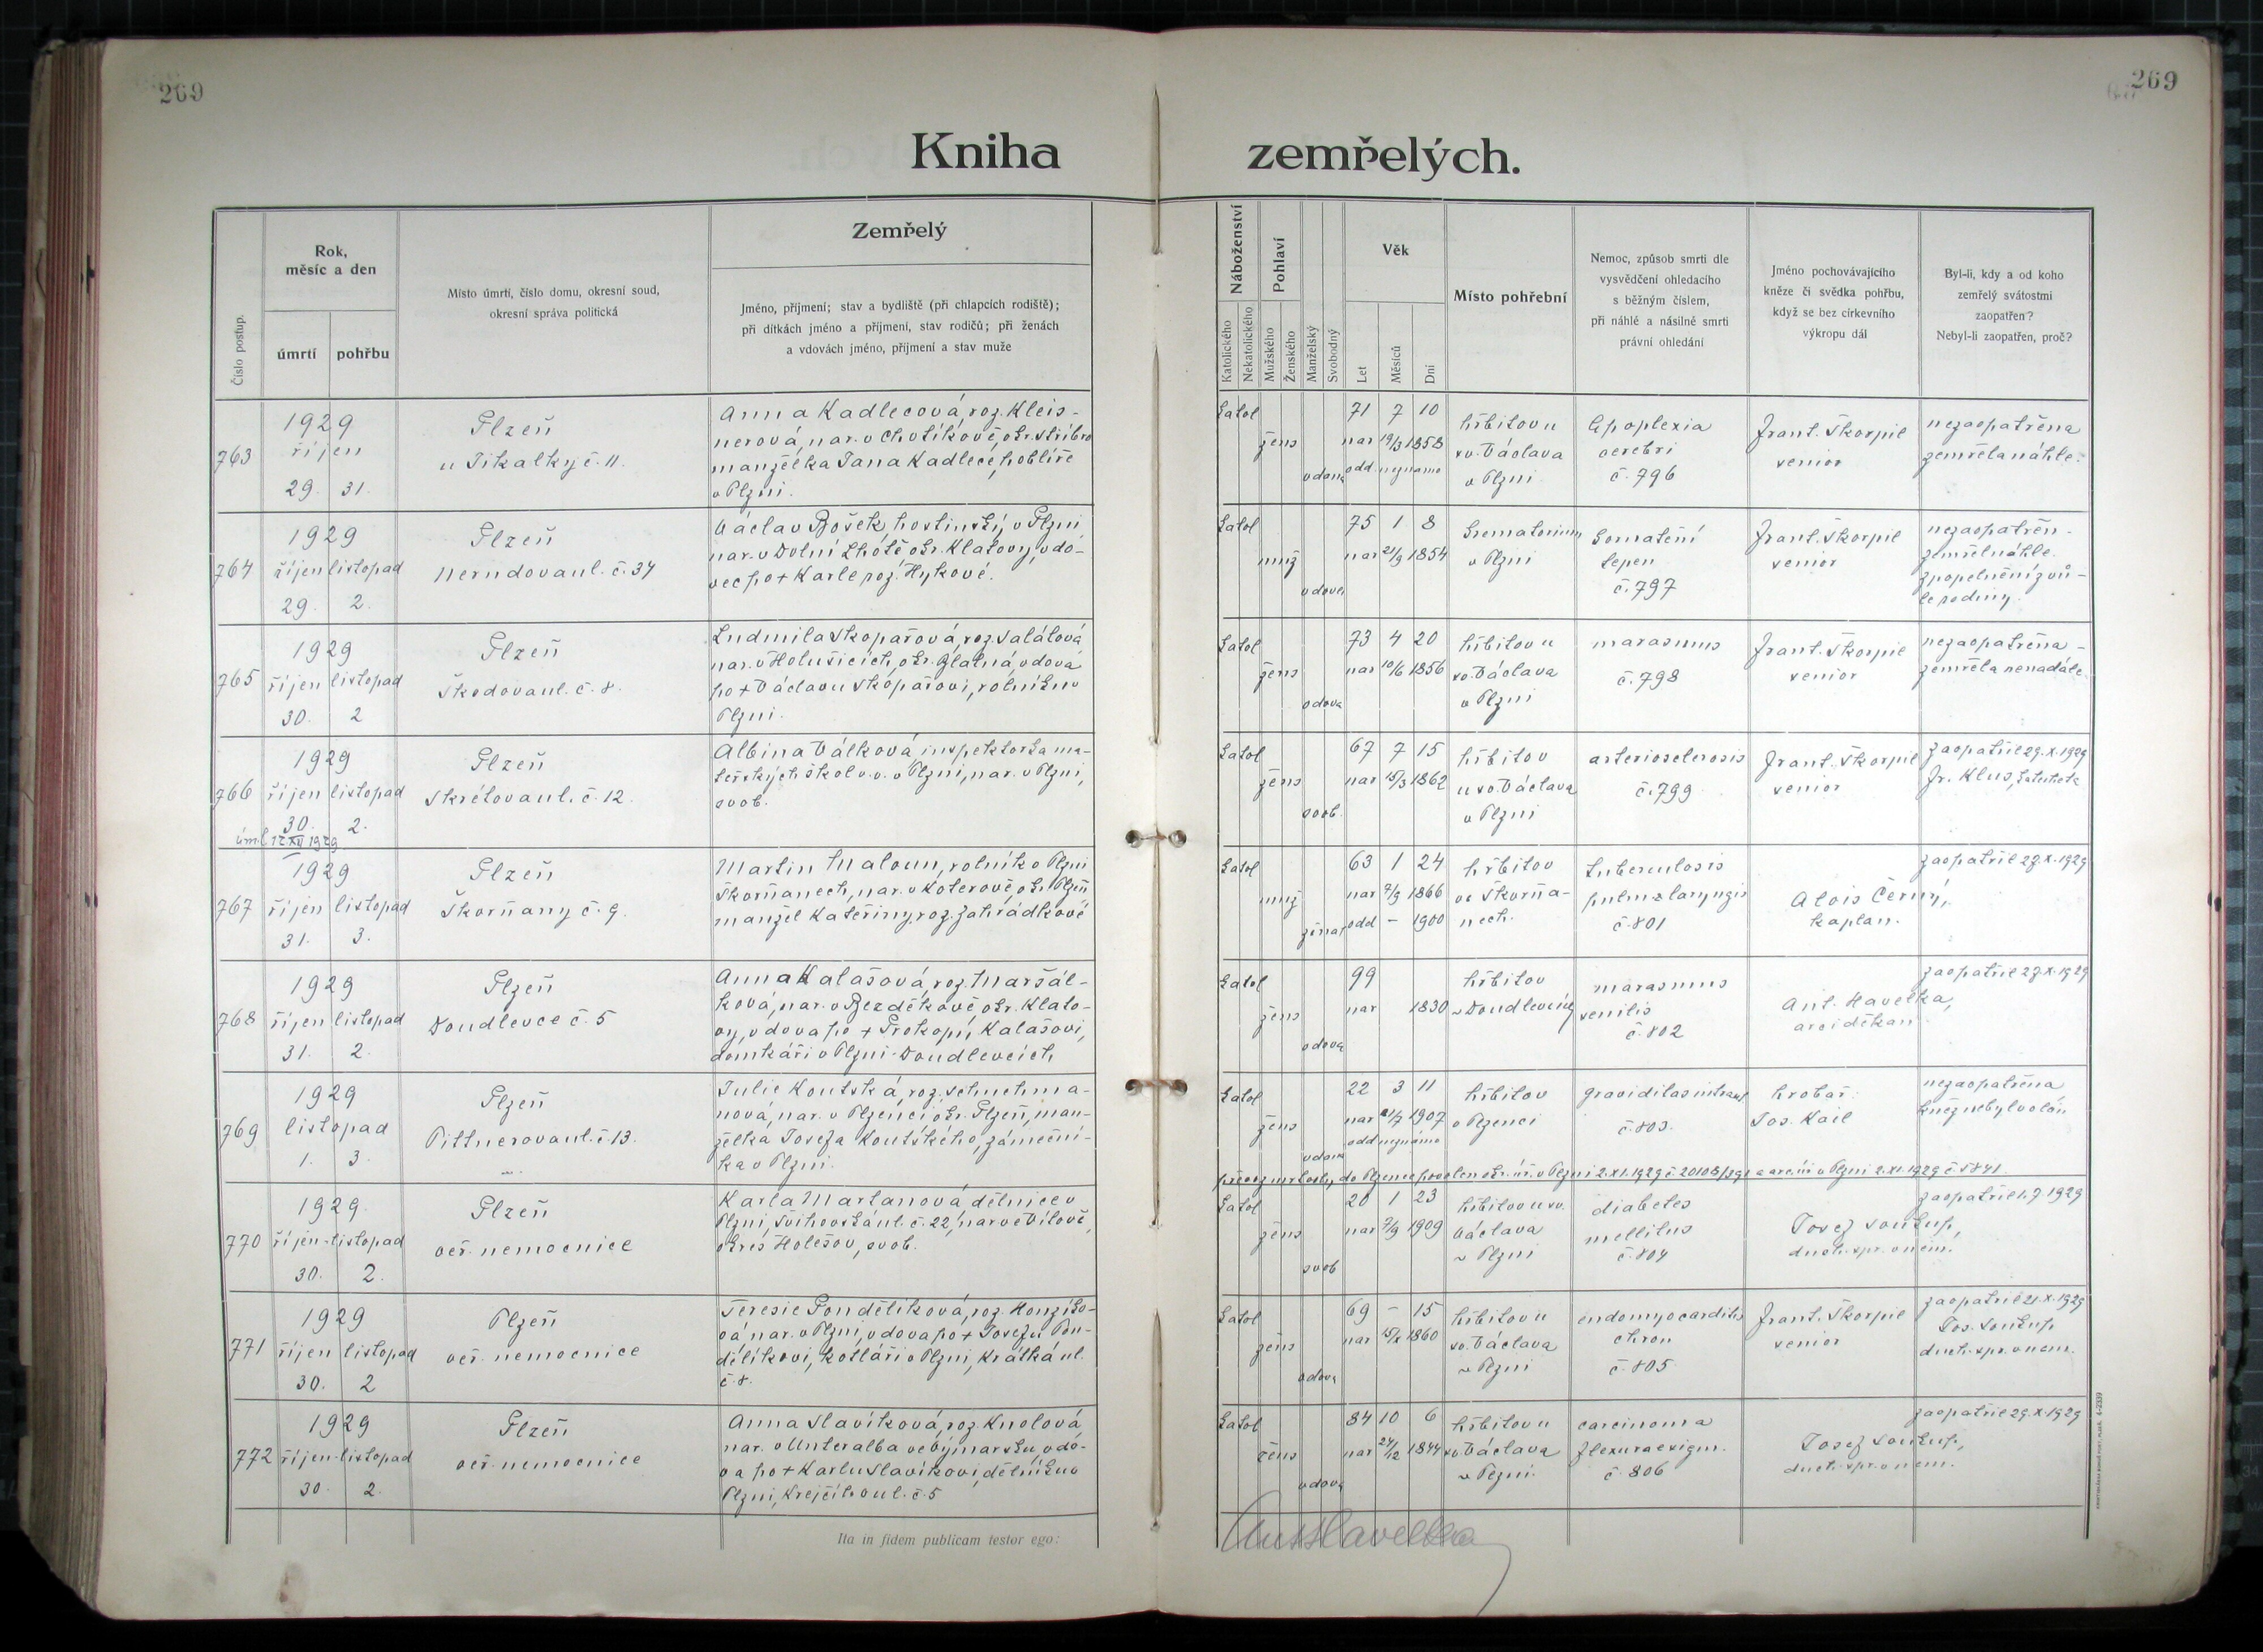 269
269
Kniha zemřelých.
Číslo postup.
Rok,
měsíc a den
úmrtí
pohřbu
Místo úmrtí, číslo domu, okresní soud,
okresní správa politická
Zemřelý
Jméno, příjmení; stav a bydliště (při chlapcích rodiště);
při dítkách jméno a příjmení, stav rodičů; při ženách
a vdovách jméno, příjmení a stav muže
Náboženství
Katolického
Nekatolického
Pohlaví
Mužského
Ženského
Manželský
Svobodný
Věk
Let
Měsíců
Dní
Místo pohřební
Nemoc, způsob smrti dle
vysvědčení ohledacího
s běžným číslem,
při náhlé a násilné smrti
právní ohledání
Jméno pochovávajícího
kněze či svědka pohřbu,
když se bez církevního
výkropu dál
Byl-li, kdy a od koho
zemřelý svátostmi
zaopatřen?
Nebyl-li zaopatřen, proč?
763
1929
říjen
29. 31.
Plzeň
u Jikalky č. 11.
Anna Kadlecová, roz. Kleis-
nerová, nar. v Chotíkově, okr. Stříbro
manželka Jana Kadlece,
v Plzni.
katol
žens
vdaná
71 7 10
nar 19/3 1858
odd. neznámo
hřbitov u
sv. Václava
v Plzni
Apoplexia
cerebri
č. 796
Frant. Škorpil
senior
nezaopatřena
zemřela náhle.
764
1929
říjen listopad
29. 2.
Plzeň
Nerudova ul. č. 34
Václav Bošek, hostinský v Plzni
nar. v Dolní Lhotě okr. Klatovy, vdo-
vec po + Karle roz. Hykové.
katol
muž
vdovec
75 1 8
nar 21/9 1854
Krematorium
v Plzni
kornatění
tepen
č. 797
Frant. Škorpil
senior
nezaopatřen -
zemřel náhle.
zpopelnění z vů-
le rodiny.
765
1929
říjen listopad
30. 2
Plzeň
Škodova ul. č. 8.
Ludmila Skopařová, roz. Salátová
nar. v Holušicích, okr. Blatná, vdova
po + Václavu Skopařovi, rolníku v
Plzni.
katol
žens
vdova
73 4 20
nar 10/6 1856
hřbitov u
sv. Václava
v Plzni
marasmus
č. 798
Frant. Škorpil
senior
nezaopatřena -
zemřela nenadále.
766
1929
říjen listopad
30. 2.
úml. 12/XII 1929
Plzeň
Skrétova ul. č. 12.
Albina Válková inspektorka ma-
teřských škol v. v. v Plzni, nar. v Plzni,
svob.
katol
žens
svob.
67 7 15
nar 15/3 1862
hřbitov
u sv. Václava
v Plzni
arteriosclerosis
č. 799
Frant. Škorpil
senior
zaopatřil 29. X. 1929
Fr. Klus, katecheta
767
1929
říjen listopad
31. 3.
Plzeň
Škorňany č. 9.
Martin Maloun, rolník v Plzni
Škorňanech, nar. v Koterově, okr. Plzeň
manžel Kateřiny, roz. Zahrádkové
katol
muž
ženat
63 1 24
nar 7/9 1866
odd - 1900
hřbitov
ve Škorňa-
nech.
tuberculosis
pulm & laryngis
č. 801
Alois Černý,
kaplan.
zaopatřil 27. X. 1929
768
1929
říjen listopad
31. 2.
Plzeň
Doudlevce č. 5
Anna Kalašová, roz. Maršál-
ková, nar. v Bezděkově okr. Klato-
vy, vdova po + Prokopu Kalašovi,
domkáři v Plzni-Doudlevcích
katol
žens
vdova
99
nar 1830
hřbitov
v Doudlevcích
marasmus
senilis
č. 802
Ant. Havelka,
arciděkan
zaopatřil 27. X. 1929
769
1929
listopad
1. 3.
Plzeň
Pittnerova ul. č. 13.
Julie Koutská, roz. Schuchma-
nova, nar. v Plzenci okr. Plzeň, man-
želka Josefa Koutského, zámeční-
ka v Plzni.
katol
žens
vdaná
22 3 11
nar 21/7 1907
odd neznámo
hřbitov
v Plzenci
graviditas
č. 803.
hrobař:
Jos. Kail
nezaopatřena
kněz nebyl volán
převoz mrtvoly do Plzence povolen okr. úř. v Plzni 2. XI. 1929 a arc. úř. v Plzni 2. XI. 1929 č. 5841.
770
1929
říjen - listopad
30. 2.
Plzeň
veř. nemocnice
Karla Martanová, dělnice v
Plzni, Švihovská ul. č. 22, nar. ve Vítově,
okres Holešov, svob.
katol
žens
svob
20 1 23
nar 7/9 1909
hřbitov u sv.
Václava
v Plzni
diabetes
mellitus
č. 804
Josef Soukup,
duch. spr. v nem.
zaopatřil 1. 9. 1929
771
1929
říjen listopad
30. 2
Plzeň
veř. nemocnice
Teresie Pondělíková, roz. Honzíko-
vá nar. v Plzni, vdova po + Josefu Pon-
dělíkovi, kotláři v Plzni, Krátká ul.
č. 8.
katol
žens
vdova
69 - 15
nar 15/X 1860
hřbitov u
sv. Václava
v Plzni
endomyocarditis
chron
č. 805
Frant. Škorpil
senior
zaopatřil 21. X. 1929
Jos. Soukup
duch. spr. v nem.
772
1929
říjen - listopad
30. 2.
Plzeň
veř. nemocnice
Anna Slavíková, roz. Knolová
nar. v Unteralba ve Výmarsku, vdo-
va po + Karlu Slavíkovi, dělníku v
Plzni, Krejčího ul. č. 5
katol
žens
vdova
84 10 6
nar 24/12 1844
hřbitov u
sv. Václava
v Plzni.
carcinoma
flexurae sigm.
č. 806
Josef Soukup,
duch. spr. v nem.
zaopatřil 29. X. 1929
Ita in fidem publicam testor ego:
Ant Havelka